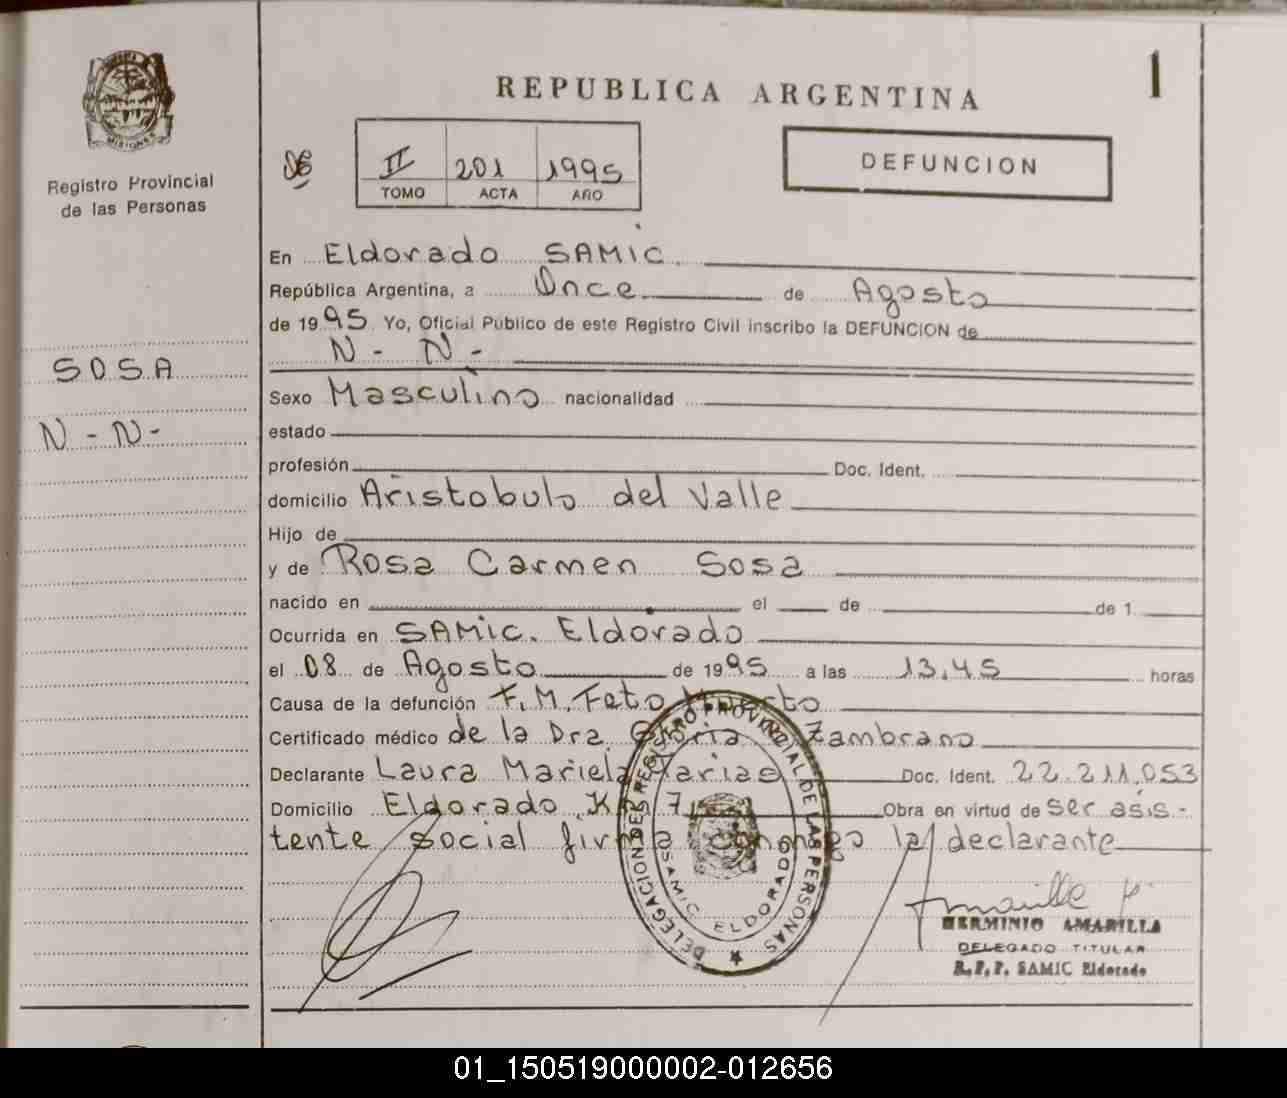 REPUBLICA ARGENTINA
1
MISIONES
Registro Provincial
de las Personas
II 201 1995
TOMO ACTA AÑO
DEFUNCION
SOSA
N - N -
En Eldorado SAMIC.
República Argentina, a Once de Agosto
de 1995 Yo, Oficial Público de este Registro Civil inscribo la DEFUNCION de
N - N -
Sexo Masculino nacionalidad
estado
profesión Doc. Ident.
domicilio Aristobulo del Valle
Hijo de
y de Rosa Carmen Sosa
nacido en el de de 1
Ocurrida en SAMIC. Eldorado
el 08 de Agosto de 1995 a las 13.45 horas
Causa de la defunción F.M. Feto Muerto
Certificado médico de la Dra. Zambrano
Declarante Laura Mariela Doc. Ident. 22.211.053
Domicilio Eldorado Km 7 Obra en virtud de ser asis-
tente social firma conmigo la declarante
DELEGACION DEL REGISTRO PROVINCIAL DE LAS PERSONAS
SAMIC ELDORADO
HERMINIO AMARILLA
DELEGADO TITULAR
R.P.P. SAMIC Eldorado
01_150519000002-012656